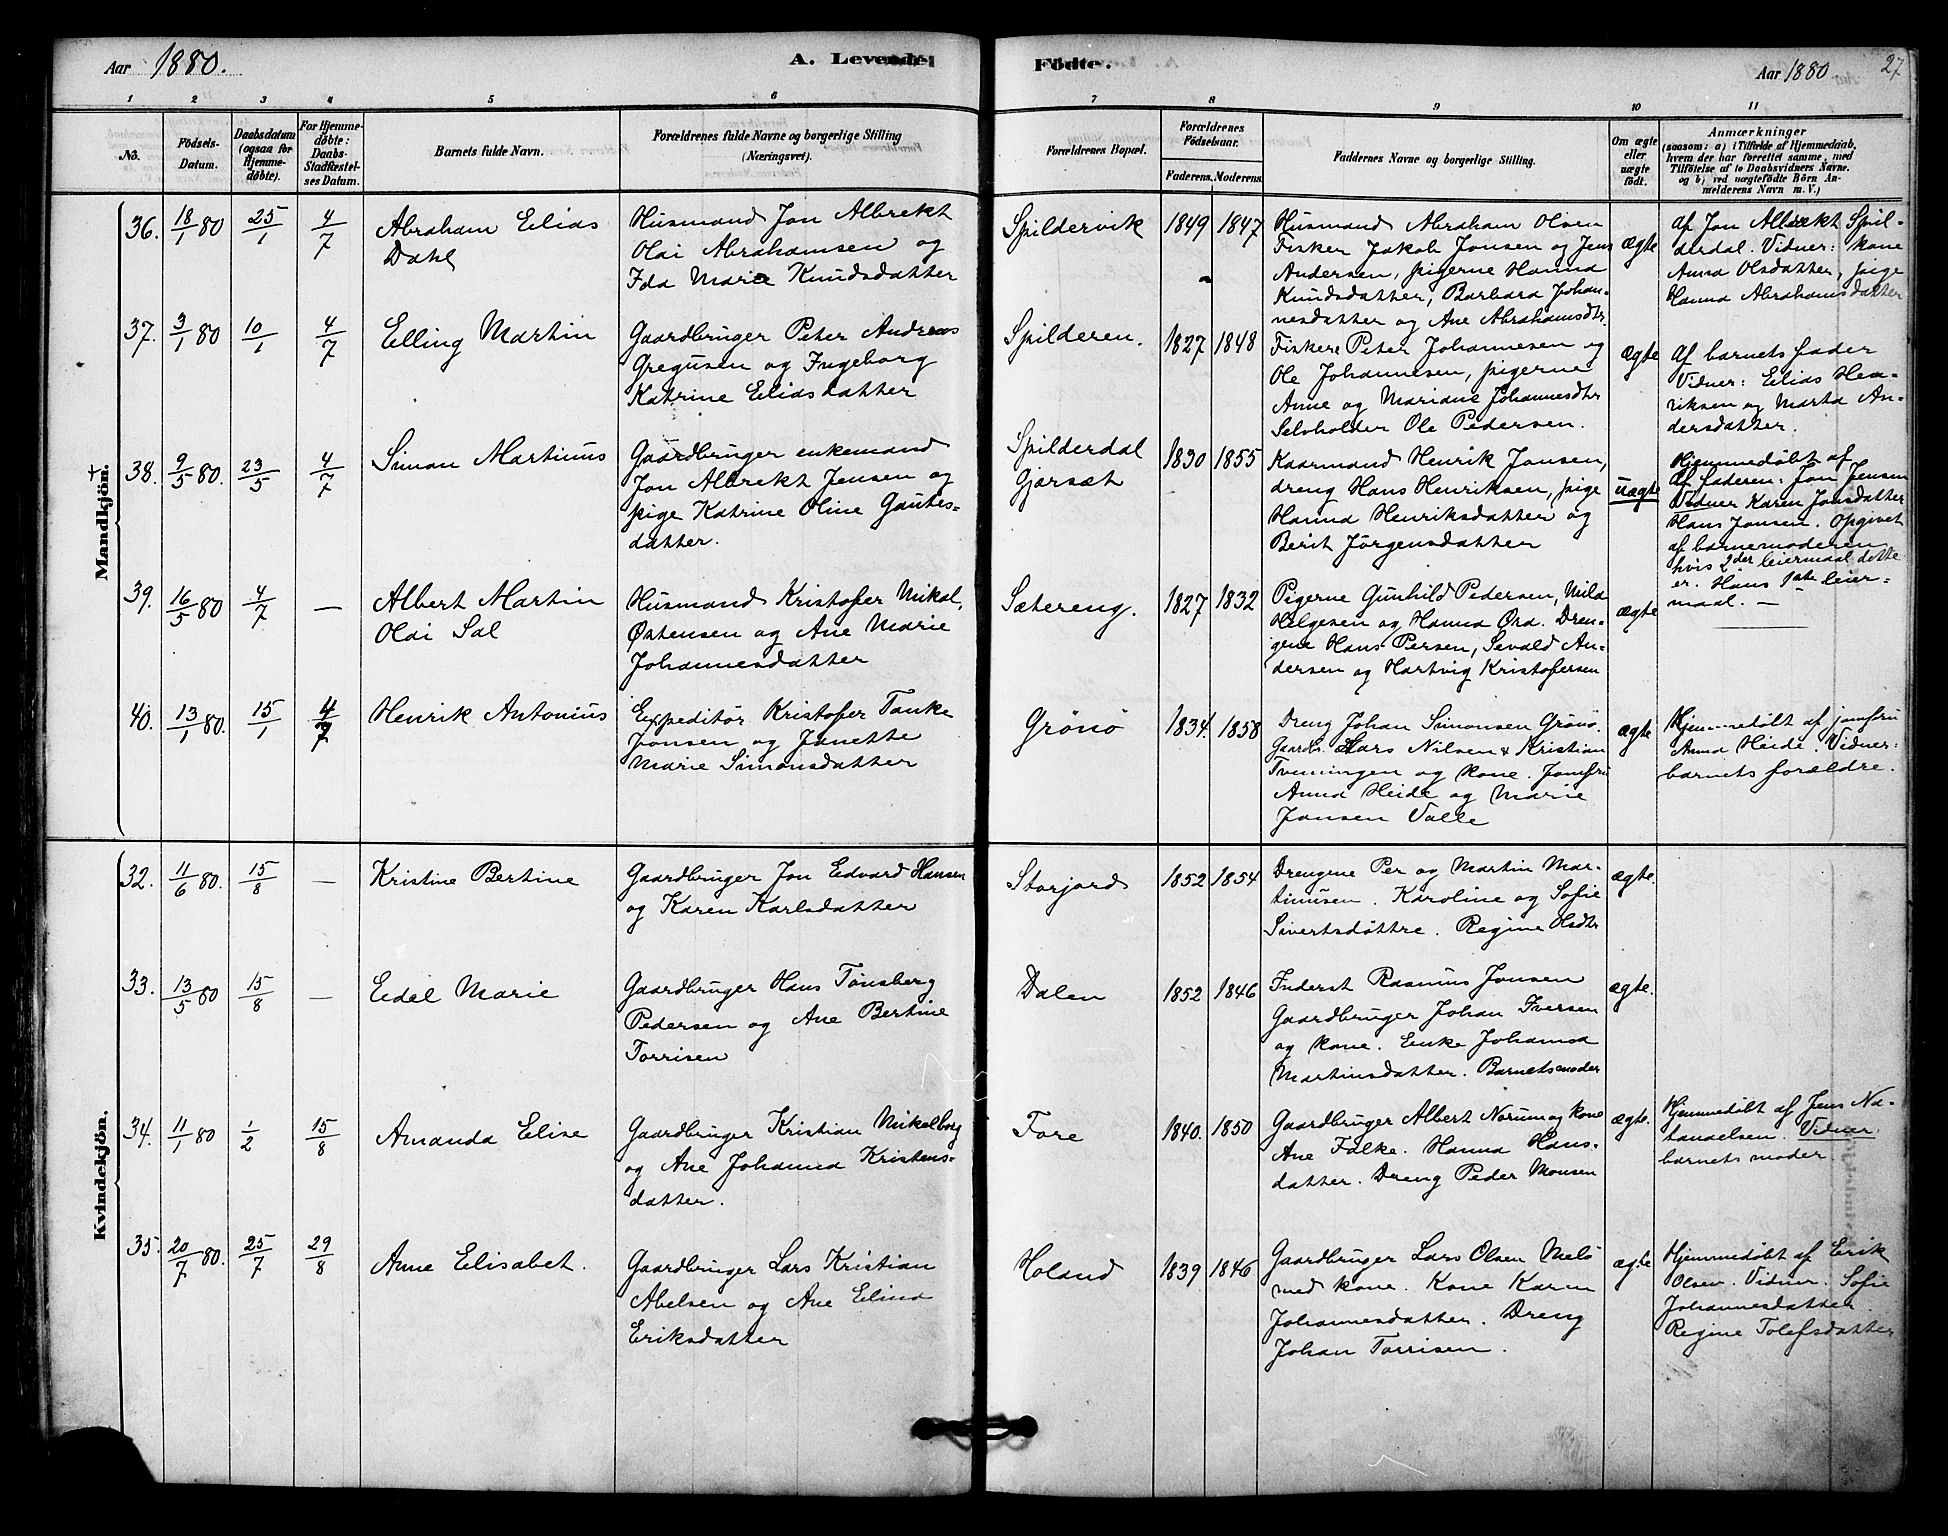 Aar 1880.
A. Levende
Födte.
Aar 1880
27
1 2 3 4 5 6 7 8 9 10 11
No.
Födsels-
Datum.
Daabsdatum
(ogsaa for
Hjemme-
döbte).
For Hjemme-
döbte:
Daabs-
Stadfæstel-
ses Datum.
Barnets fulde Navn.
Forældrenes fulde Navne og borgerlige Stilling
(Næringsvei).
Forældrenes Bopæl.
Forældrenes
Födselsaar.
Faderens. Moderens.
Faddernes Navne og borgerlige Stilling.
Om ægte
eller
uægte
födt.
Anmærkninger
(saasom: a) i Tilfælde af Hjemmedaab,
hvem der har forrettet samme, med
Tilföielse af to Daabsvidners Navne.
og b) ved uægtefödte Börn An-
melderens Navn m. V.)
Mandkjön.
36. 18/1 80 25/1 4/7
Abraham Elias
Dahl
Husmand Jon Albrekt
Olai Abrahamsen og
Ida Marie Knudsdatter
Spildervik
1849 1847
Husmand Abraham Olsen
Fisker Jakob Jonsen og Jens
Andersen, pigerne Hanna
Knudsdatter, Barbara Johan-
nesdatter og Ane Abrahamsdtr.
ægte
Af Jon Albrekt Spil-
derdal. Vidner: kone
Anna Olsdatter, pige
Hanna Abrahamsdatter
37. 3/1 80 10/1 4/7
Elling Martin
Gaardbruger Peter Andreas
Gregusen og Ingeborg
Katrine Eliasdatter
Spilderen.
1827 1848
Fiskere Peter Johannesen og
Ole Johannesen, pigerne
Anne og Mariane Johannesdtr
Selvholder Ole Pedersen.
ægte
Af barnets fader
Vidner: Elias Hen-
riksen og Marta An-
dersdatter.
38. 9/5 80. 23/5 4/7
Simon Martinus
Gaardbruger enkemand
Jon Albrekt Jensen og
pige Katrine Oline Gautes-
datter.
Spilderdal
Gjersæt
1830 1855
Kaarmand Henrik Jonsen,
dreng Hans Henriksen, pige
Hanna Henriksdatter og
Berit Jörgensdatter
uægte
Hjemmedøbt af
Af faderen: Jon Jensen
Vidner Karen Jonsdatter
Hans Jonsen. Opgivet
af barnemoderen
hvis 2der leiermaal dette
er. Hans 1ste leier-
maal. —
39. 16/5 80 4/7 —
Albert Martin
Olai Sal
Husmand Kristofer Mikal,
Østensen og Ane Marie
Johannesdatter
Sætereng.
1827 1832
Pigerne Gunhild Pedersen, Mila
Helgesen og Hanna Ora. Dren-
gene Hans Persen, Sevald An-
dersen og Hartvig Kristofersen
ægte
40. 13/1 80. 15/1 4/7
Henrik Antonius
Expeditör Kristofer Tanke
Jonsen og Janette
Marie Simonsdatter
Grönö
1834. 1858
Dreng Johan Simonsen Grönö.
Gaardbr. Lars Nilsen & Kristian
Tveningen og kone. Jomfru
Anna Heide og Marie
Jansen Valle
ægte
Hjemmedøbt af jomfru
Anna Heide. Vidner:
barnets forældre.
Kvindekjön.
32. 11/6 80. 15/8 —
Kristine Bertine
Gaardbruger Jon Edvard Hansen
og Karen Karlsdatter
Storjord
1852 1854
Drengene Per og Martin Mar-
tinusen. Karoline og Sofie
Sivertsdöttre. Regine Olsdtr
ægte.
33. 13/5 80 15/8 —
Edel Marie
Gaardbruger Hans Tönsberg
Pedersen og Ane Bertine
Torrisen
Dalen
1852 1846
Inderst Rasmus Jonsen
Gaardbruger Johan Iversen
og kone. Enke Johanna
Martinsdatter. Barnets moder
ægte.
34. 11/1 80 1/2 15/8
Amanda Elise
Gaardbruger Kristian Mikelborg
og Ane Johanna Kristens-
datter.
Fore
1840. 1850
Gaardbruger Albert Norum og kone
Ane Falke. Hanna Hans-
datter. Dreng Peder Monsen
ægte.
Hjemmedøbt af Jens Na-
tanaelsen. Vidner.
barnets moder
35. 20/7 80. 25/7 29/8
Anne Elisabet.
Gaardbruger Lars Kristian
Abelsen og Ane Elina
Eriksdatter
Holand
1839 1846
Gaardbruger Lars Olsen Melö
med kone. Kone Karen
Johannesdatter. Dreng
Johan Torrisen.
ægte
Hjemmedøbt af Erik
Olsen. Vidner. Sofie
Johannesdatter.
Regine Tolefsdatter